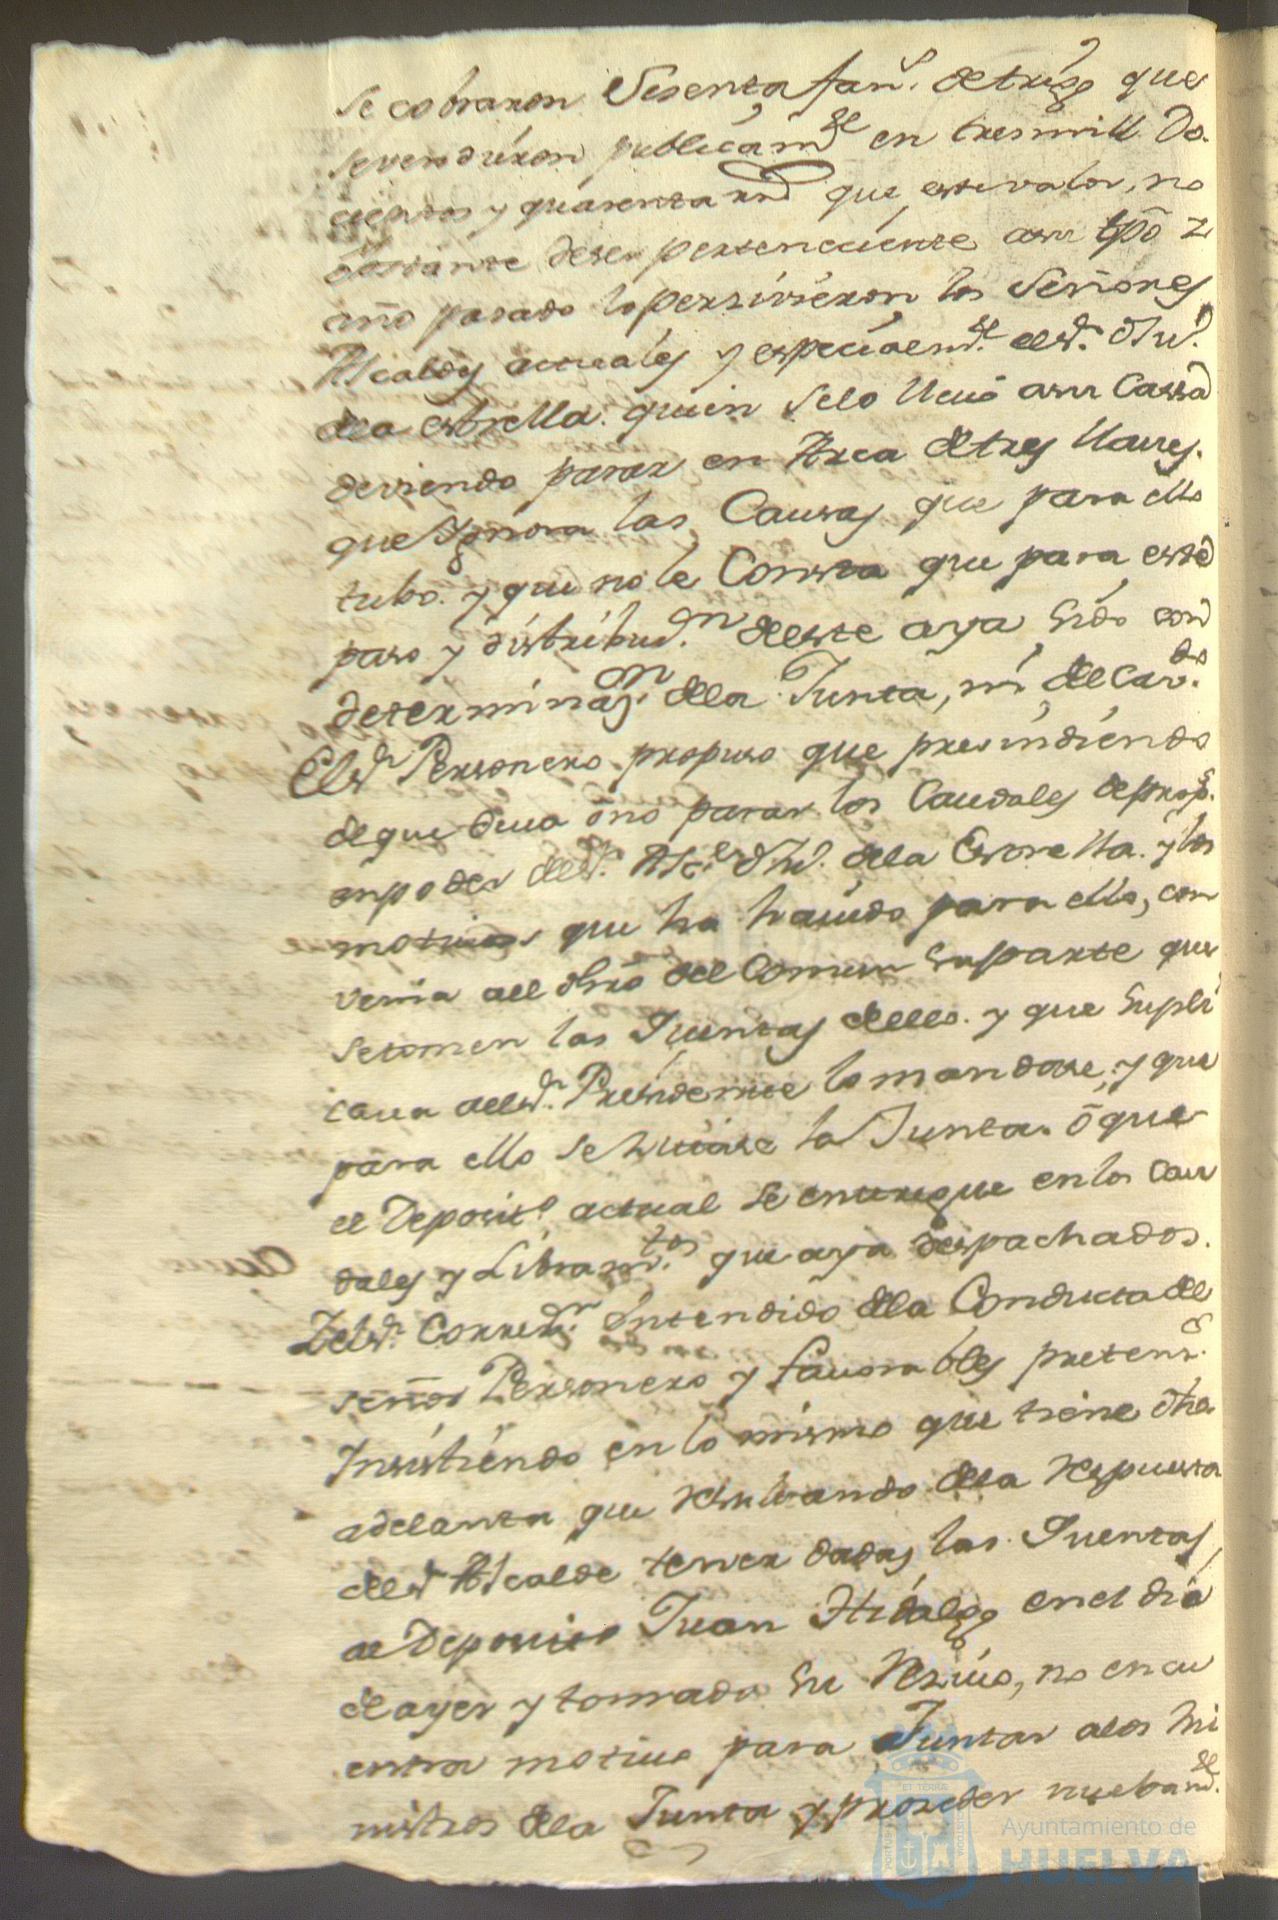 se cobraron Sesenta fan.s de trigo que
se vendieron publicam.te en tres mill Do-
cientos y quarenta rr.s que este valor, no
obstante deser perteneciente asu tpõ y
año pasado lo persivieron los Señores
Alcaldes actuales y especialm.te el s.r d.n Ju.
dela estrella. quien selo llevó asu Cassa
deviendo parar en Arca de tres llaves.
que Ygnora las Causas que para ello
tubo. y que no le Consta que para este
paso y distribuz.n deeste aya sido con
determinaz.on dela Junta, ni del Cav.do
El s.r Personero propuso que presindiendo
deque deva ó no parar los Caudales de prop.s
enpoder del s.r Alc.e d.n Ju. dela Estrella. y los
motivos que ha havido para ello, con
venia al dro del Comun su parte que
setomen las Quentas dello. y que supli
cava alls.r Presidente lo mandase, y que
para ello se hiciese la Junta. ó que
el Deposit.o actual se entregue en los Cau
dales y Libram.tos que aya despachados.
Y el s.r Corre.or Entendido dela Conducta del
señor Personero y favorables pretens.s
Insistiendo en lo mismo que tiene dho
adelanta que resultando dela respuesta
del s.r Alcalde tener dadas las Quentas
el Deposit.o Juan Hidalgo en el dia
de ayer y tomado su Resivo, no encu
entra motivo para Juntar alos Mi
nistros dela Junta y proceder nuebam.te
Ayuntamiento de
HUELVA